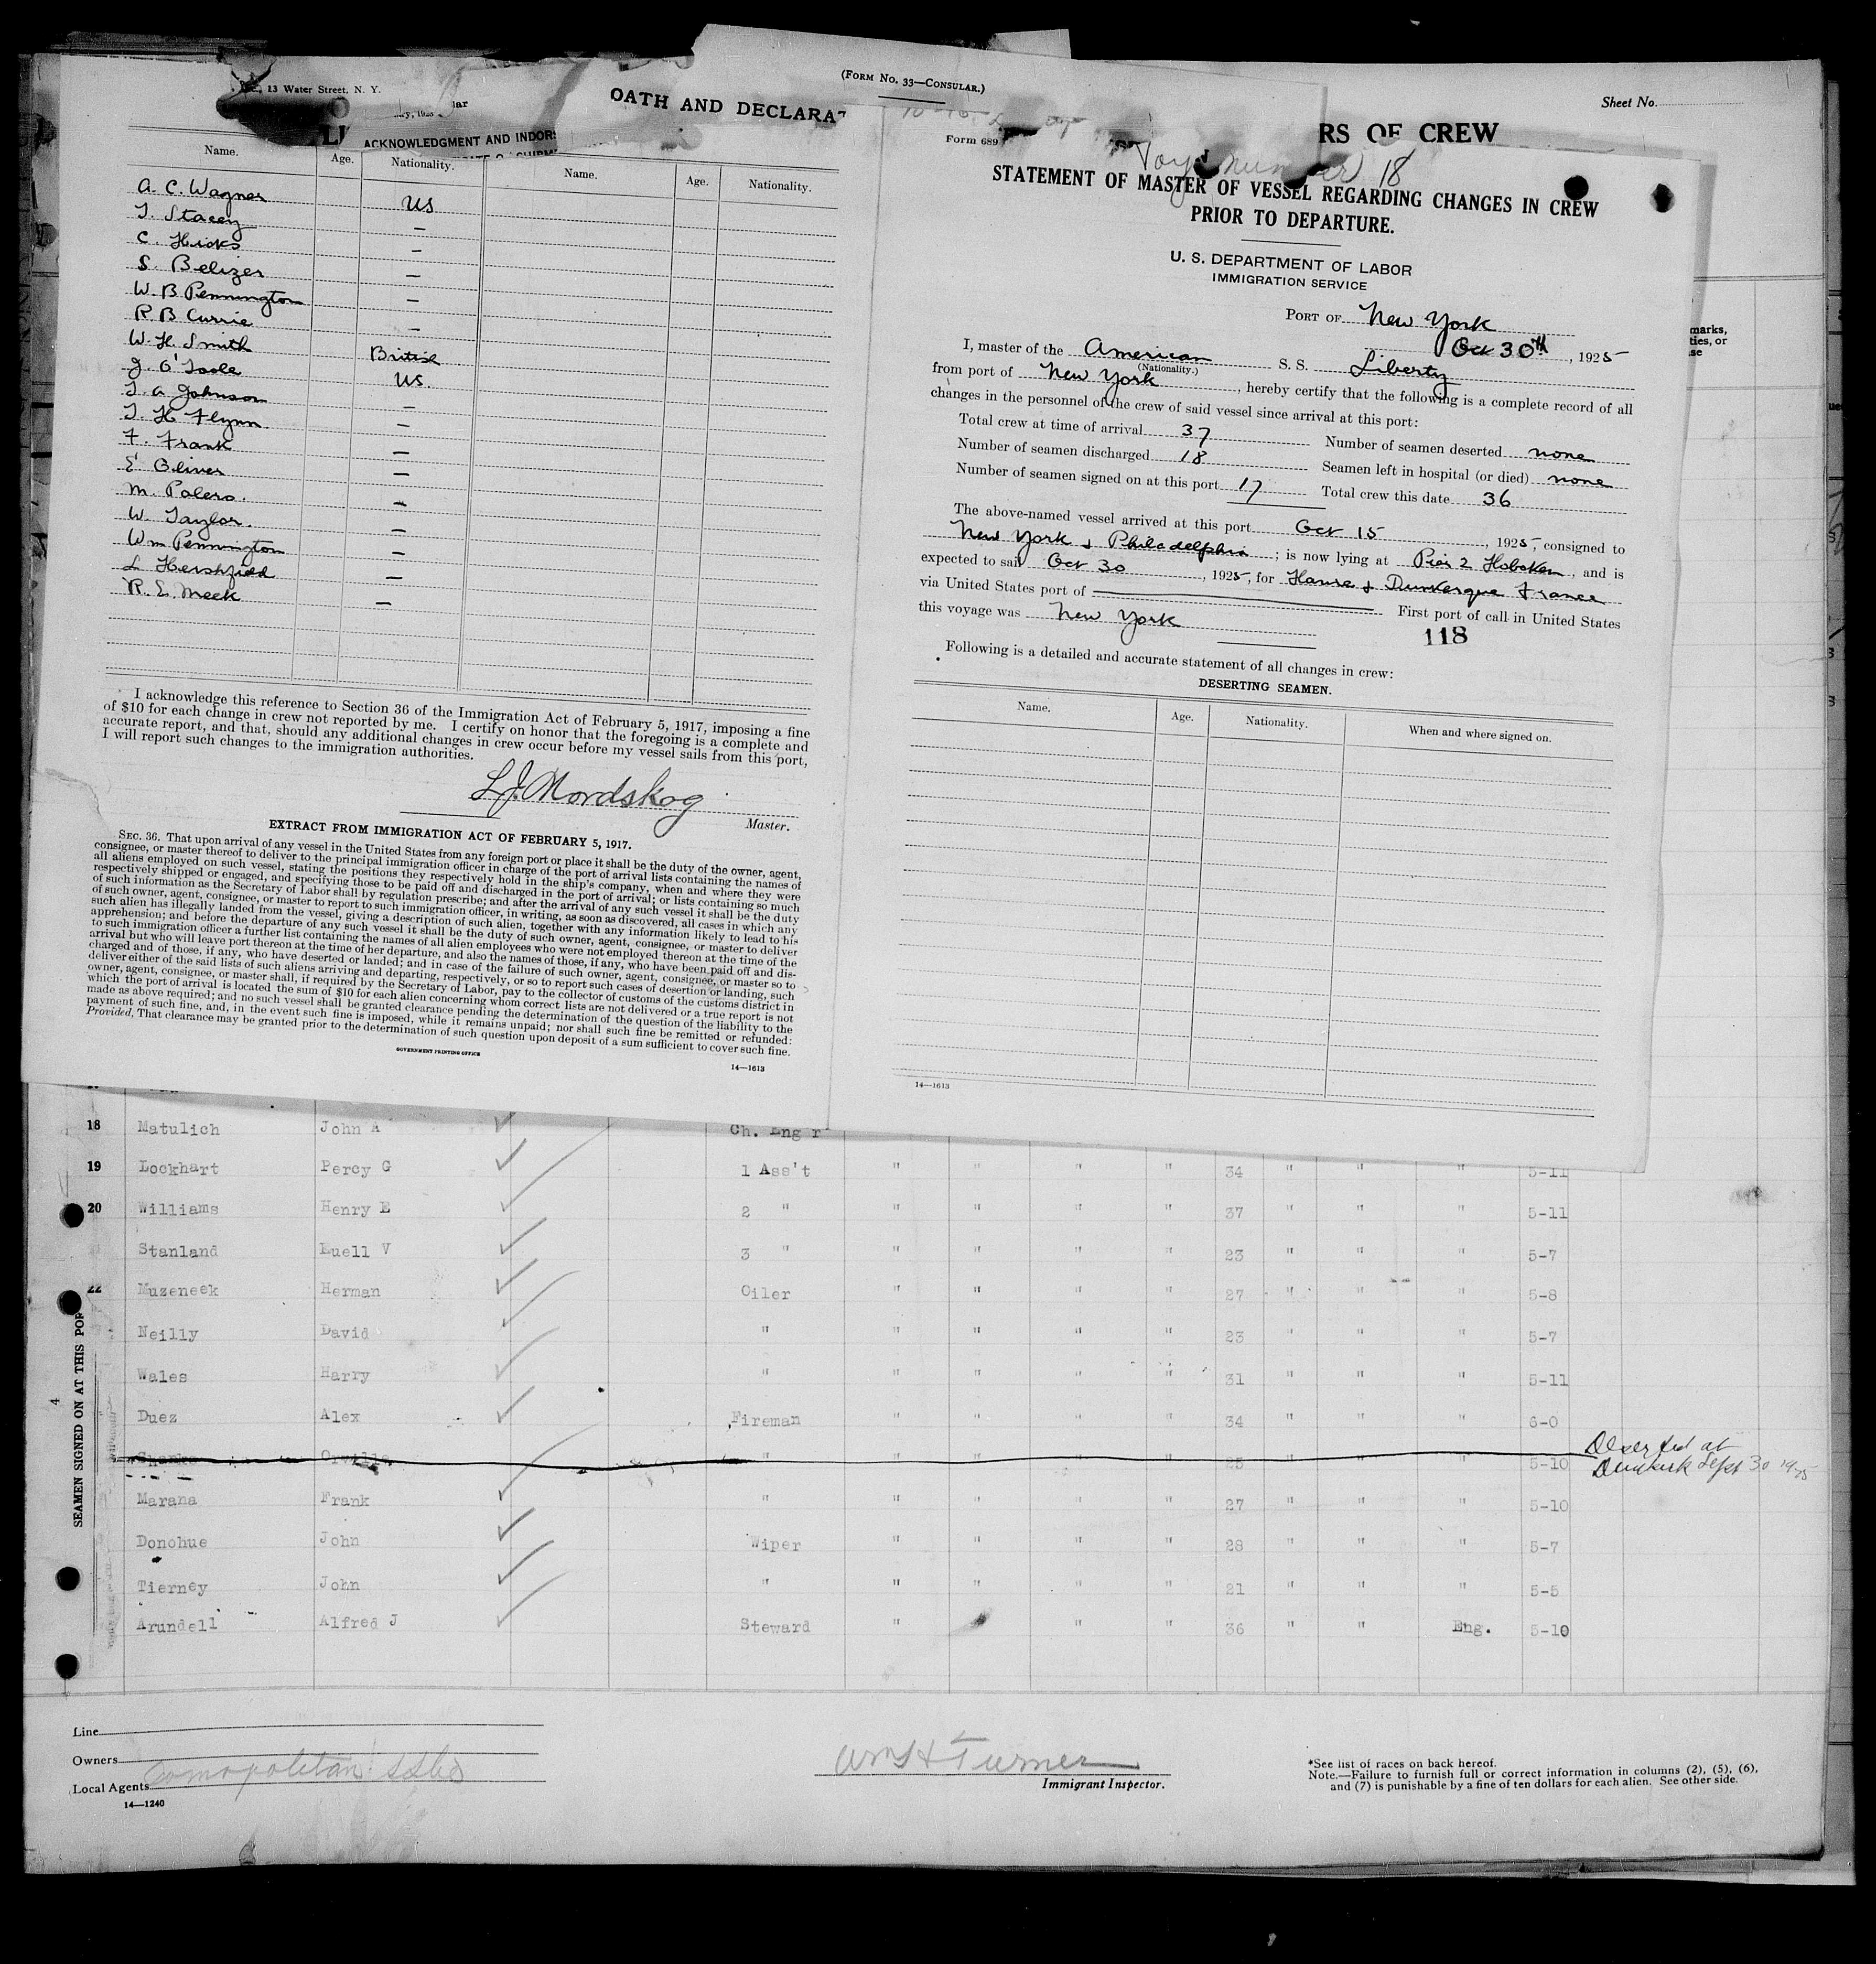 13 Water Street, N. Y.
(Form No. 33—Consular.)
Sheet No.
OATH AND DECLARAT
RS OF CREW
ACKNOWLEDGMENT AND INDORS
Name. Age. Nationality. Name. Age. Nationality.
A. C. Wagner US
T. Stacey —
C. Hicks —
S. Belizer —
W. B Pennington —
R B Currie —
W. H. Smith British
J. O'Toole US
T. A Johnson —
T. H Flynn —
F. Frank —
E Oliver —
M. Palero. —
W. Taylor. —
Wm Pennington —
L Hershfield —
R. E. Meek —
I acknowledge this reference to Section 36 of the Immigration Act of February 5, 1917, imposing a fine
of $10 for each change in crew not reported by me. I certify on honor that the foregoing is a complete and
accurate report, and that, should any additional changes in crew occur before my vessel sails from this port,
I will report such changes to the immigration authorities.
L.J. Nordskog
Master.
EXTRACT FROM IMMIGRATION ACT OF FEBRUARY 5, 1917.
SEC. 36. That upon arrival of any vessel in the United States from any foreign port or place it shall be the duty of the owner, agent,
consignee, or master thereof to deliver to the principal immigration officer in charge of the port of arrival lists containing the names of
all aliens employed on such vessel, stating the positions they respectively hold in the ship's company, when and where they were
respectively shipped or engaged, and specifying those to be paid off and discharged in the port of arrival; or lists containing so much
of such information as the Secretary of Labor shall by regulation prescribe; and after the arrival of any such vessel it shall be the duty
of such owner, agent, consignee, or master to report to such immigration officer, in writing, as soon as discovered, all cases in which any
such alien has illegally landed from the vessel, giving a description of such alien, together with any information likely to lead to his
apprehension; and before the departure of any such vessel it shall be the duty of such owner, agent, consignee, or master to deliver
to such immigration officer a further list containing the names of all alien employees who were not employed thereon at the time of the
arrival but who will leave port thereon at the time of her departure, and also the names of those, if any, who have been paid off and dis-
charged and of those, if any, who have deserted or landed; and in case of the failure of such owner, agent, consignee, or master so to
deliver either of the said lists of such aliens arriving and departing, respectively, or so to report such cases of desertion or landing, such
owner, agent, consignee, or master shall, if required by the Secretary of Labor, pay to the collector of customs of the customs district in
which the port of arrival is located the sum of $10 for each alien concerning whom correct lists are not delivered or a true report is not
made as above required; and no such vessel shall be granted clearance pending the determination of the question of the liability to the
payment of such fine, and, in the event such fine is imposed, while it remains unpaid; nor shall such fine be remitted or refunded:
Provided, That clearance may be granted prior to the determination of such question upon deposit of a sum sufficient to cover such fine.
GOVERNMENT PRINTING OFFICE
14—1613
Form 689
18
STATEMENT OF MASTER OF VESSEL REGARDING CHANGES IN CREW
PRIOR TO DEPARTURE.
U. S. DEPARTMENT OF LABOR
IMMIGRATION SERVICE
PORT OF New York
Oct 30th, 1925
I, master of the American S. S. Liberty
(Nationality.)
from port of New York, hereby certify that the following is a complete record of all
changes in the personnel of the crew of said vessel since arrival at this port:
Total crew at time of arrival 37 Number of seamen deserted none
Number of seamen discharged 18 Seamen left in hospital (or died) none
Number of seamen signed on at this port 17 Total crew this date 36
The above-named vessel arrived at this port Oct 15, 1925, consigned to
New York & Philadelphia; is now lying at Pier 2 Hoboken, and is
expected to sail Oct 30, 1925, for Havre & Dunkerque France
via United States port of First port of call in United States
this voyage was New York
118
Following is a detailed and accurate statement of all changes in crew:
DESERTING SEAMEN.
Name. Age. Nationality. When and where signed on.
14—1613
marks,
ties, or
se
18 Matulich John A Ch. Eng'r
19 Lockhart Percy G 1 Ass't " " " " 34 " " " 5-11
20 Williams Henry E 2 " " " " " 37 " " " 5-11
Stanland Luell V 3 " " " " " 23 " " " 5-7
22 Muzeneek Herman Oiler " " " " 27 " " " 5-8
Neilly David " " " " " 23 " " " 5-7
Wales Harry " " " " " 31 " " " 5-11
Duez Alex Fireman " " " " 34 " " " 6-0
Orville " " " " " 25 " " " 5-10 Deserted at
Dunkirk Sept 30 1925
Marana Frank " " " " " 27 " " " 5-10
Donohue John Wiper " " " " 28 " " " 5-7
Tierney John " " " " " 21 " " " 5-5
Arundell Alfred J Steward " " " 36 " " Eng. 5-10
SEAMEN SIGNED ON AT THIS POR
4
Line
Owners
Local Agents
14—1240
Wm H Turner
Immigrant Inspector.
*See list of races on back hereof.
Note.—Failure to furnish full or correct information in columns (2), (5), (6),
and (7) is punishable by a fine of ten dollars for each alien. See other side.